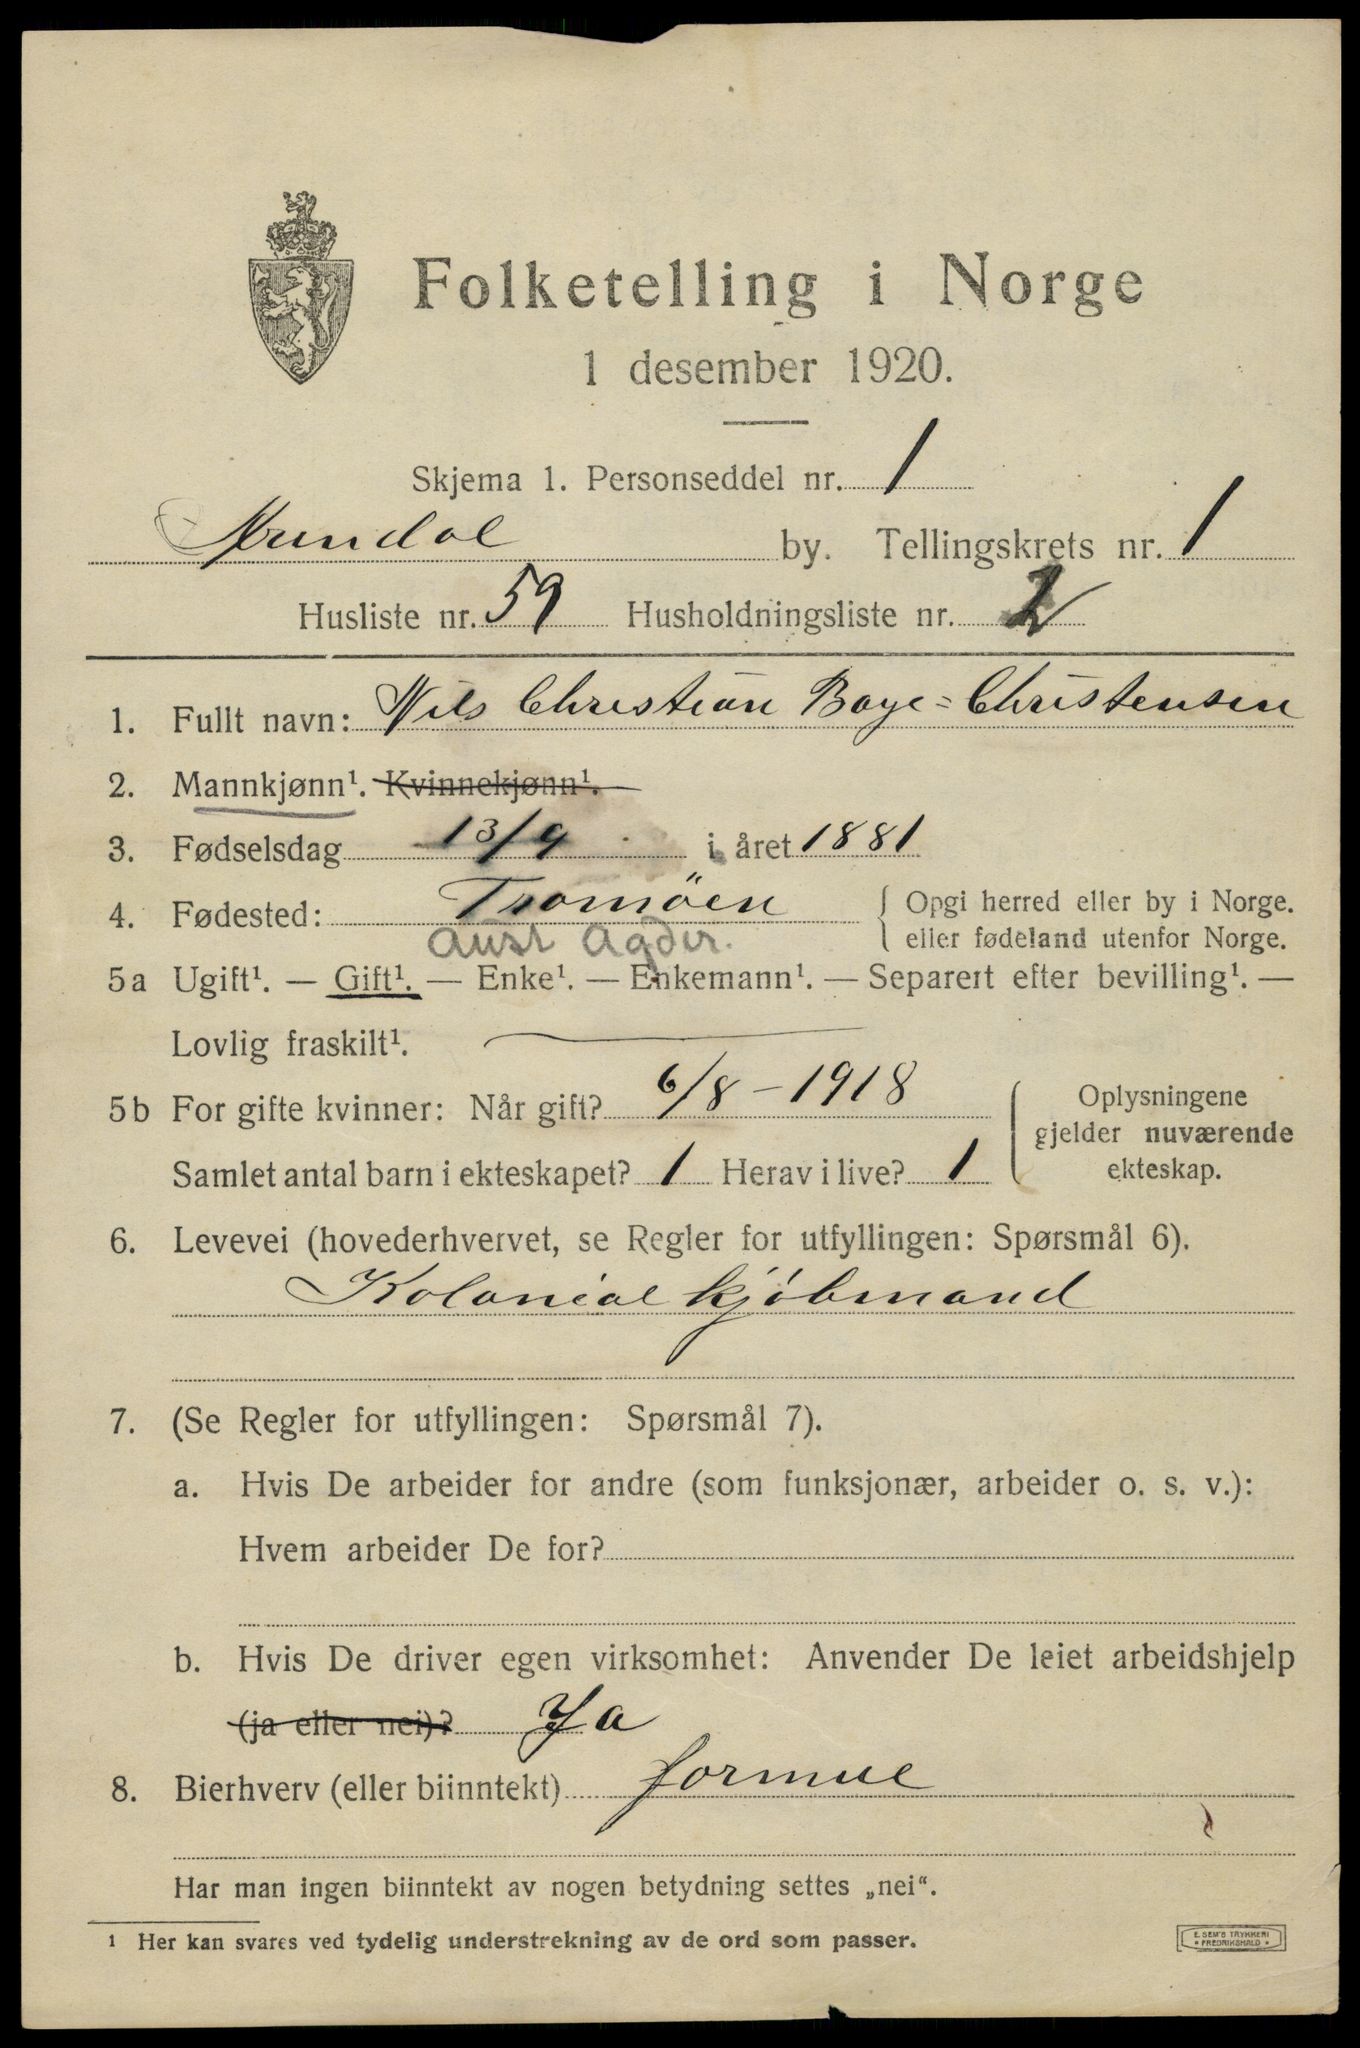 Folketelling i Norge
1 desember 1920.
Skjema 1. Personseddel nr. 1
Arendal by. Tellingskrets nr. 1
Husliste nr. 59 Husholdningsliste nr. 2
1. Fullt navn: Nils Christian Boye=Christensen
2. Mannkjønn¹. Kvinnekjønn¹.
3. Fødselsdag 13/9 i året 1881
4. Fødested: Tromöen { Opgi herred eller by i Norge.
Aust Agder. eller fødeland utenfor Norge.
5a Ugift¹. — Gift¹. — Enke¹. — Enkemann¹. — Separert efter bevilling¹. —
Lovlig fraskilt¹.
5b For gifte kvinner: Når gift? 6/8 – 1918
Samlet antal barn i ekteskapet? 1 Herav i live? 1
Oplysningene
gjelder nuværende
ekteskap.
6. Levevei (hovederhvervet, se Regler for utfyllingen: Spørsmål 6).
Kolonial kjöbmand
7. (Se Regler for utfyllingen: Spørsmål 7).
a. Hvis De arbeider for andre (som funksjonær, arbeider o. s. v.):
Hvem arbeider De for?
b. Hvis De driver egen virksomhet: Anvender De leiet arbeidshjelp
(ja eller nei)? Ja
8. Bierhverv (eller biinntekt) formue
Har man ingen biinntekt av nogen betydning settes „nei“.
¹ Her kan svares ved tydelig understrekning av de ord som passer.
E. SEM'S TRYKKERI
• FREDRIKSHALD •